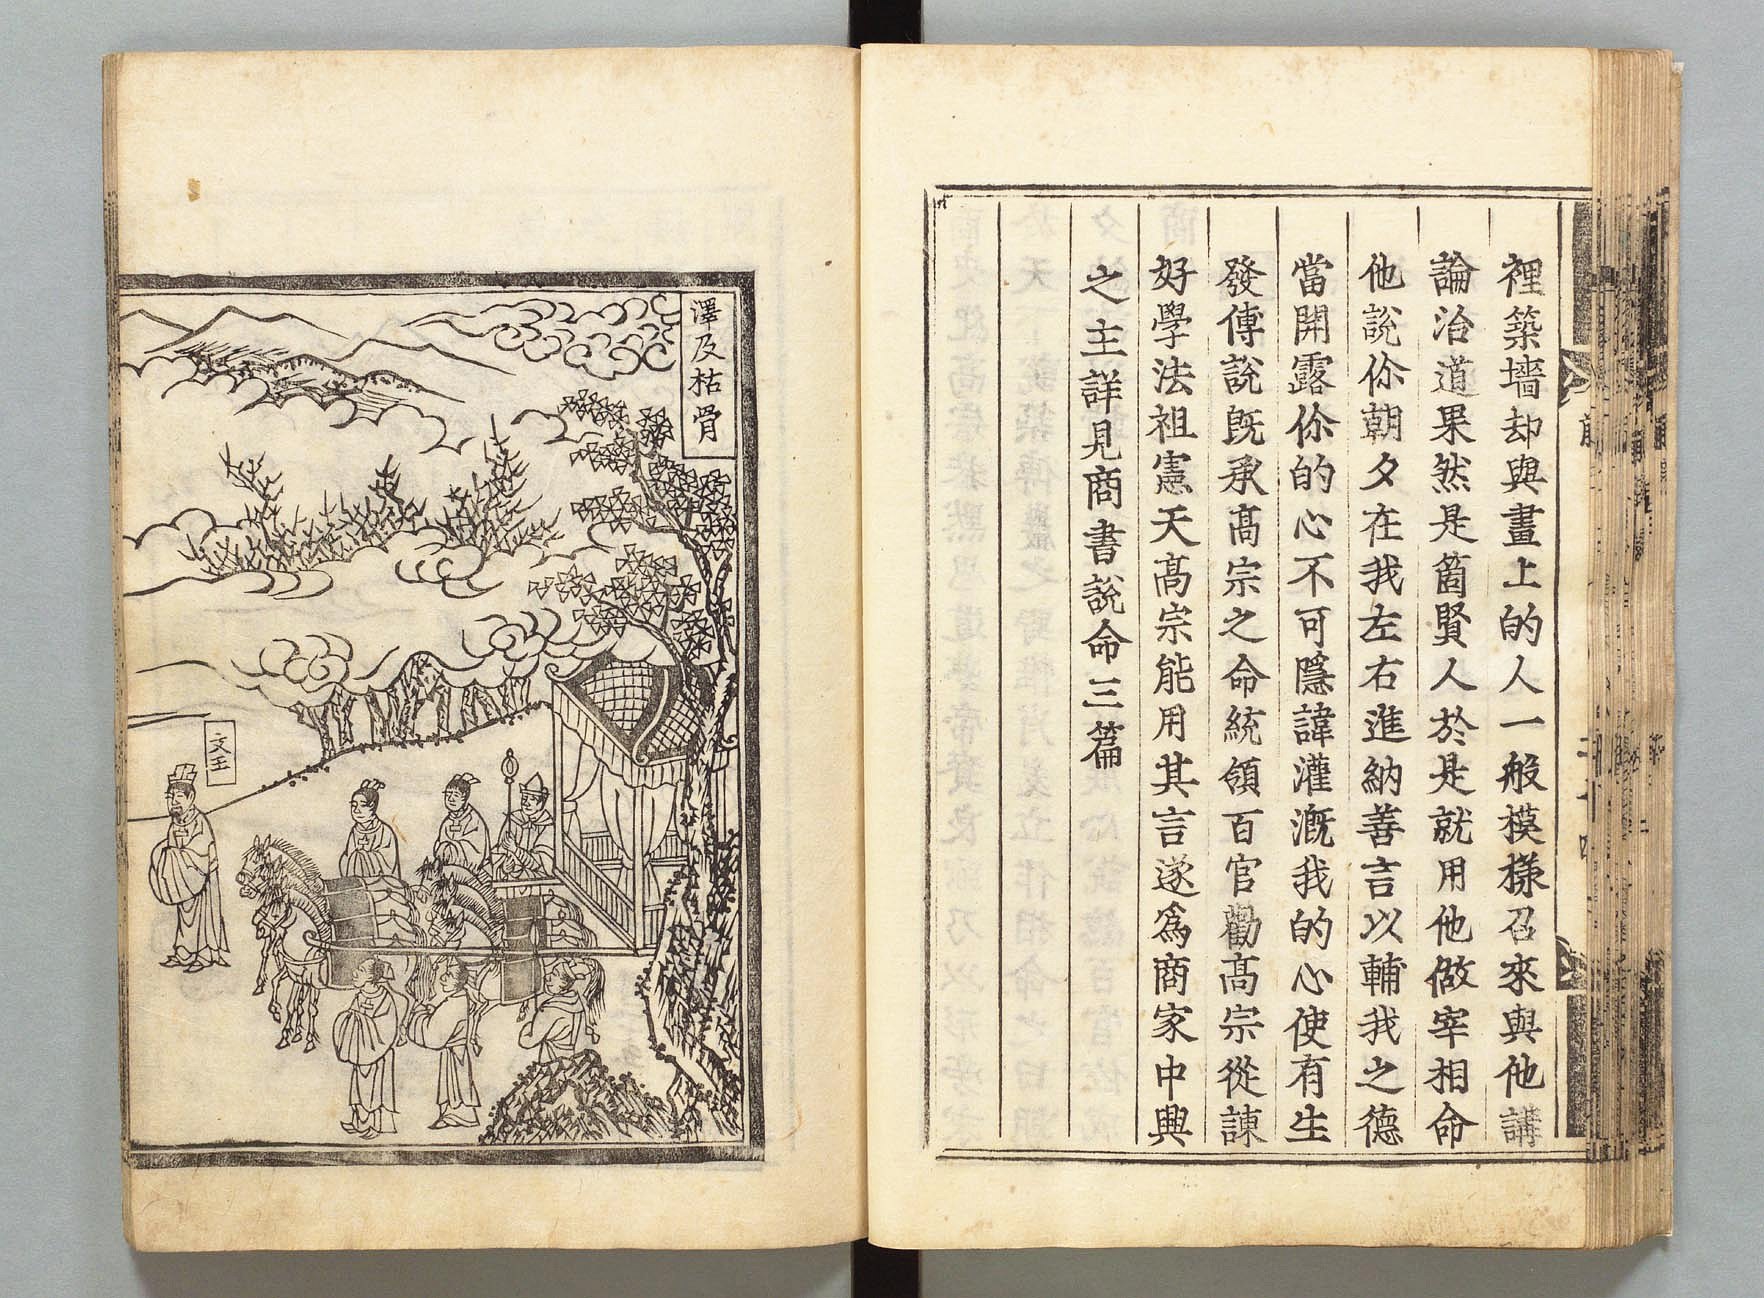 裡築墻却與畫上的人一般模樣召來與他講
論治道果然是箇賢人於是就用他做宰相命
他說你朝夕在我左右進納善言以輔我之德
當開露你的心不可隱諱灌漑我的心使有生
發傅說旣承高宗之命統領百官勸高宗從諫
好學法祖憲天高宗能用其言遂爲商家中興
之主詳見商書說命三篇
澤及枯骨
文王